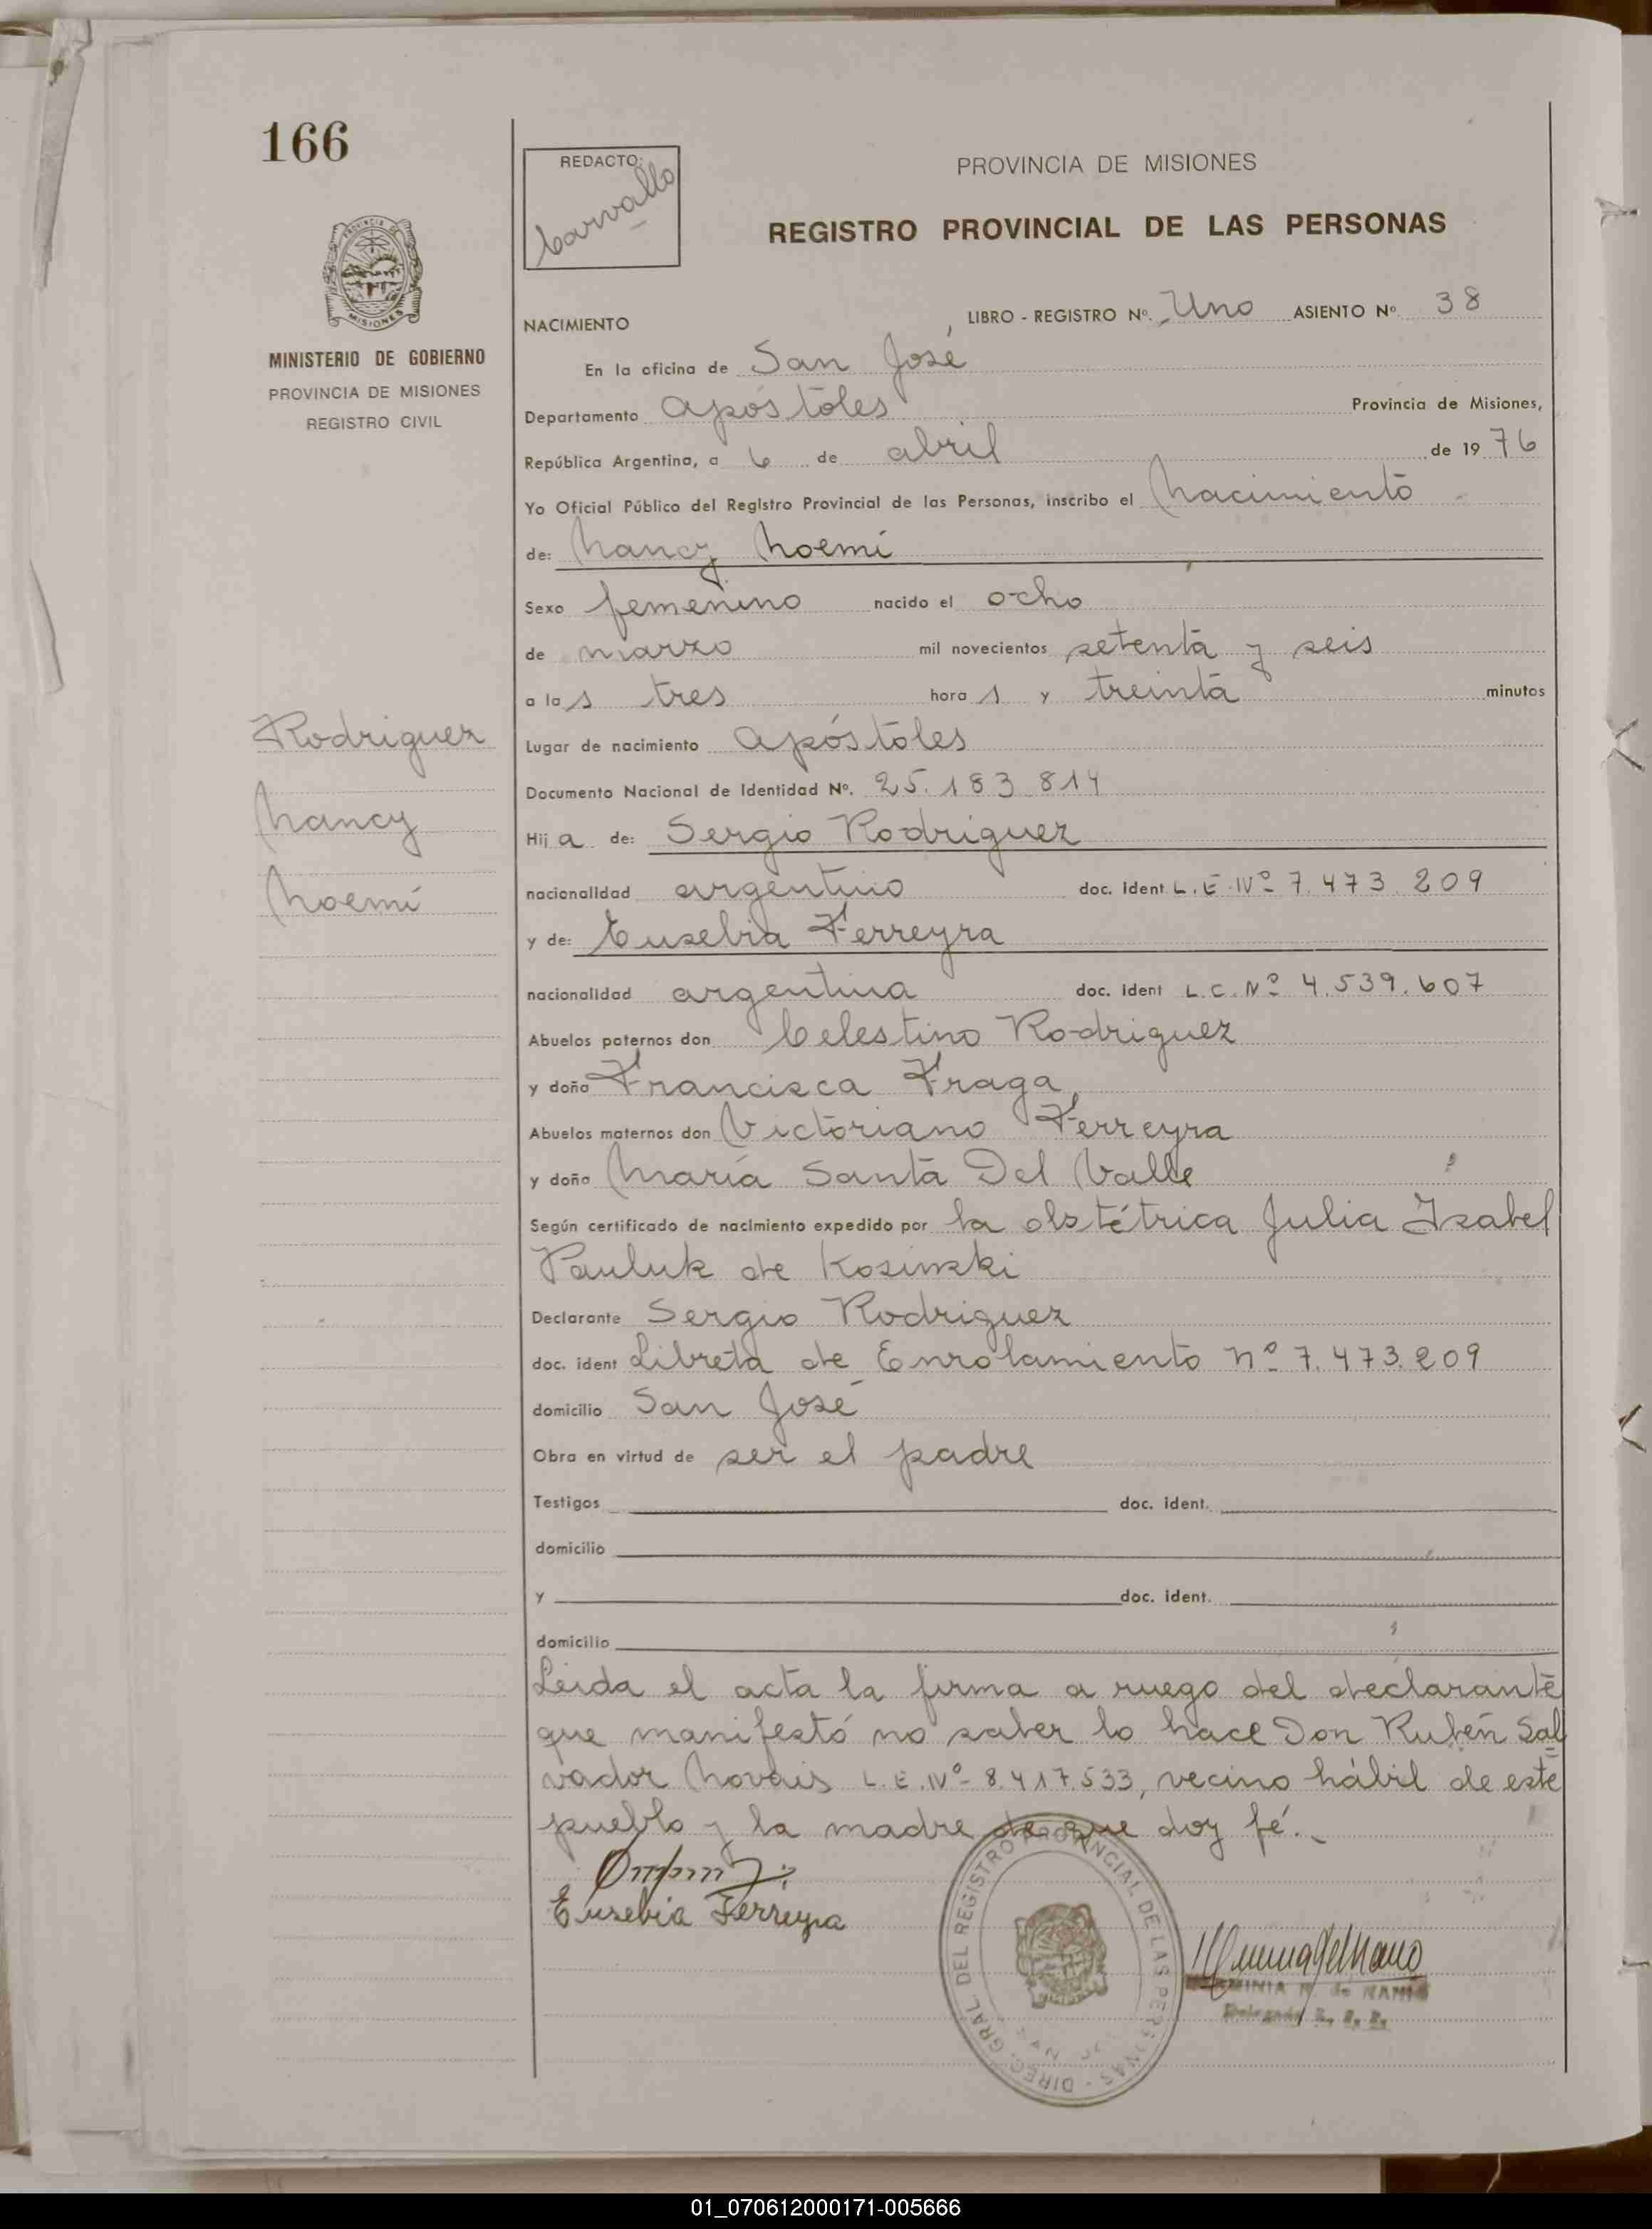 166
REDACTO:
Carvallo
PROVINCIA DE MISIONES
REGISTRO PROVINCIAL DE LAS PERSONAS
MISIONES
MINISTERIO DE GOBIERNO
PROVINCIA DE MISIONES
REGISTRO CIVIL
NACIMIENTO LIBRO - REGISTRO Nº. Uno ASIENTO Nº 38
En la oficina de San José
Departamento Apóstoles Provincia de Misiones,
República Argentina, a 6 de abril de 19 76
Yo Oficial Público del Registro Provincial de las Personas, inscribo el Nacimiento
de: Nancy Noemí
Sexo femenino nacido el ocho
de marzo mil novecientos setenta y seis
a la s tres hora s y treinta minutos
Rodriguez
Nancy
Noemí
Lugar de nacimiento Apóstoles
Documento Nacional de Identidad Nº. 25.183 814
Hij a de: Sergio Rodriguez
nacionalidad argentino doc. ident L.E.Nº 7.473.209
y de: Eusebia Ferreyra
nacionalidad argentina doc. ident L.C.Nº 4.539.607
Abuelos paternos don Celestino Rodriguez
y doña Francisca Fraga
Abuelos maternos don Victoriano Ferreyra
y doña María Santa Del Valle
Según certificado de nacimiento expedido por la obstétrica Julia Isabel
Pauluk de Kosinski
Declarante Sergio Rodriguez
doc. ident Libreta de Enrolamiento nº 7.473.209
domicilio San José
Obra en virtud de ser el padre
Testigos doc. ident.
domicilio
y doc. ident.
domicilio
Leida el acta la firma a ruego del declarante
que manifestó no saber lo hace Don Rubén Sal
vador Novais L.E.Nº 8.417.533, vecino hábil de este
pueblo y la madre de que doy fé.
Eusebia Ferreyra
DIREC. GRAL. DEL REGISTRO PROVINCIAL DE LAS PERSONAS
01_070612000171-005666